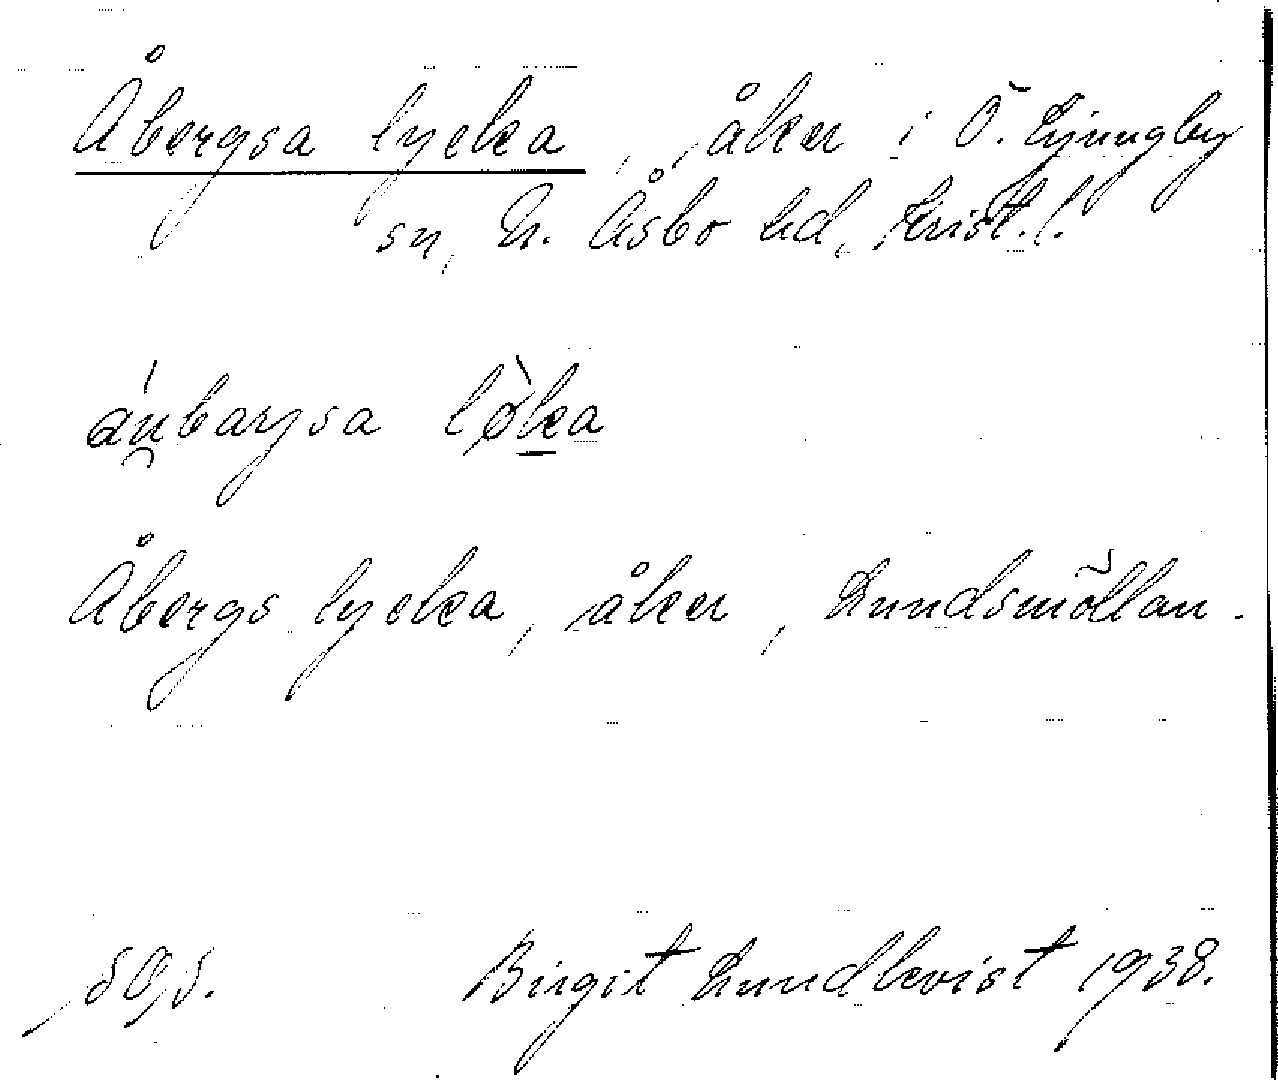 Åbergsa lycka, åker i Ö. Ljungby
sn, N. Åsbo hd, Krist. l.
áu̯barjsa lø̀ka
Åbergs lycka, åker, Lundsmöllan.
Birgit Lundkvist 1938.